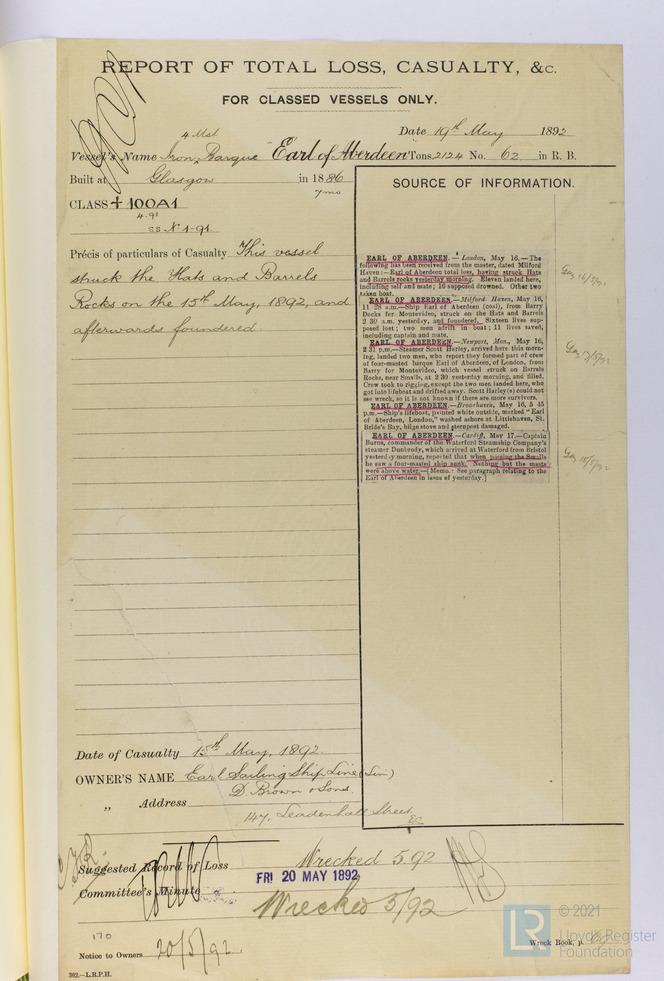 REPORT OF TOTAL LOSS, CASUALTY, &c.
FOR CLASSED VESSELS ONLY.
Date 19th May 1892
4 Mst
Vessel's Name Iron Barque Earl of Aberdeen Tons 2124 No. 62 in R. B.
Built at Glasgow in 1886
7 mo
CLASS +100A1
4.91
SS No 1-91
Précis of particulars of Casualty This vessel
struck the Hats and Barrels
Rocks on the 15th May, 1892, and
afterwards foundered.
SOURCE OF INFORMATION.
EARL OF ABERDEEN.—London, May 16.—The
following has been received from the master, dated Milford
Haven:—Earl of Aberdeen total loss, having struck Hats
and Barrels rocks yesterday morning. Eleven landed here,
including self and mate; 16 supposed drowned. Other two
taken boat.
EARL OF ABERDEEN.—Milford Haven, May 16,
11 28 a.m.—Ship Earl of Aberdeen (coal), from Barry
Docks for Montevideo, struck on the Hats and Barrels
2 30 a.m. yesterday, and foundered. Sixteen lives sup-
posed lost; two men adrift in boat; 11 lives saved,
including captain and mate.
EARL OF ABERDEEN.—Newport, Mon., May 16,
2 31 p.m.—Steamer Scott Harley, arrived here this morn-
ing, landed two men, who report they formed part of crew
of four-masted barque Earl of Aberdeen, of London, from
Barry for Montevideo, which vessel struck on Barrels
Rocks, near Smalls, at 2 30 yesterday morning, and filled.
Crew took to rigging, except the two men landed here, who
got into lifeboat and drifted away. Scott Harley(s) could not
see wreck, so it is not known if there are more survivors.
EARL OF ABERDEEN.—Broadhaven, May 16, 5 45
p.m.—Ship's lifeboat, painted white outside, marked "Earl
of Aberdeen, London," washed ashore at Littlehaven, St.
Bride's Bay, bilge stove and sternpost damaged.
EARL OF ABERDEEN.—Cardiff, May 17.—Captain
Burns, commander of the Waterford Steamship Company's
steamer Dunbrody, which arrived at Waterford from Bristol
yesterday morning, reported that when passing the Smalls
he saw a four-masted ship sunk. Nothing but the masts
were above water.—[Memo.: See paragraph relating to the
Earl of Aberdeen in issue of yesterday.]
Gaz 16/5/92
Gaz 17/5/92
Gaz 18/5/92
Date of Casualty 15th May, 1892.
OWNER'S NAME Earl Sailing Ship Line (Lim)
D. Brown & Sons.
„ Address
147, Leadenhall Street,
EC
Suggested Record of Loss Wrecked 5.92
Committee's Minute FRI 20 MAY 1892
Wrecked 5/92
170
Notice to Owners 20/5/92
Wreck Book, p.
302.—L.R.P.H.
LR
© 2021
Lloyd's Register
Foundation